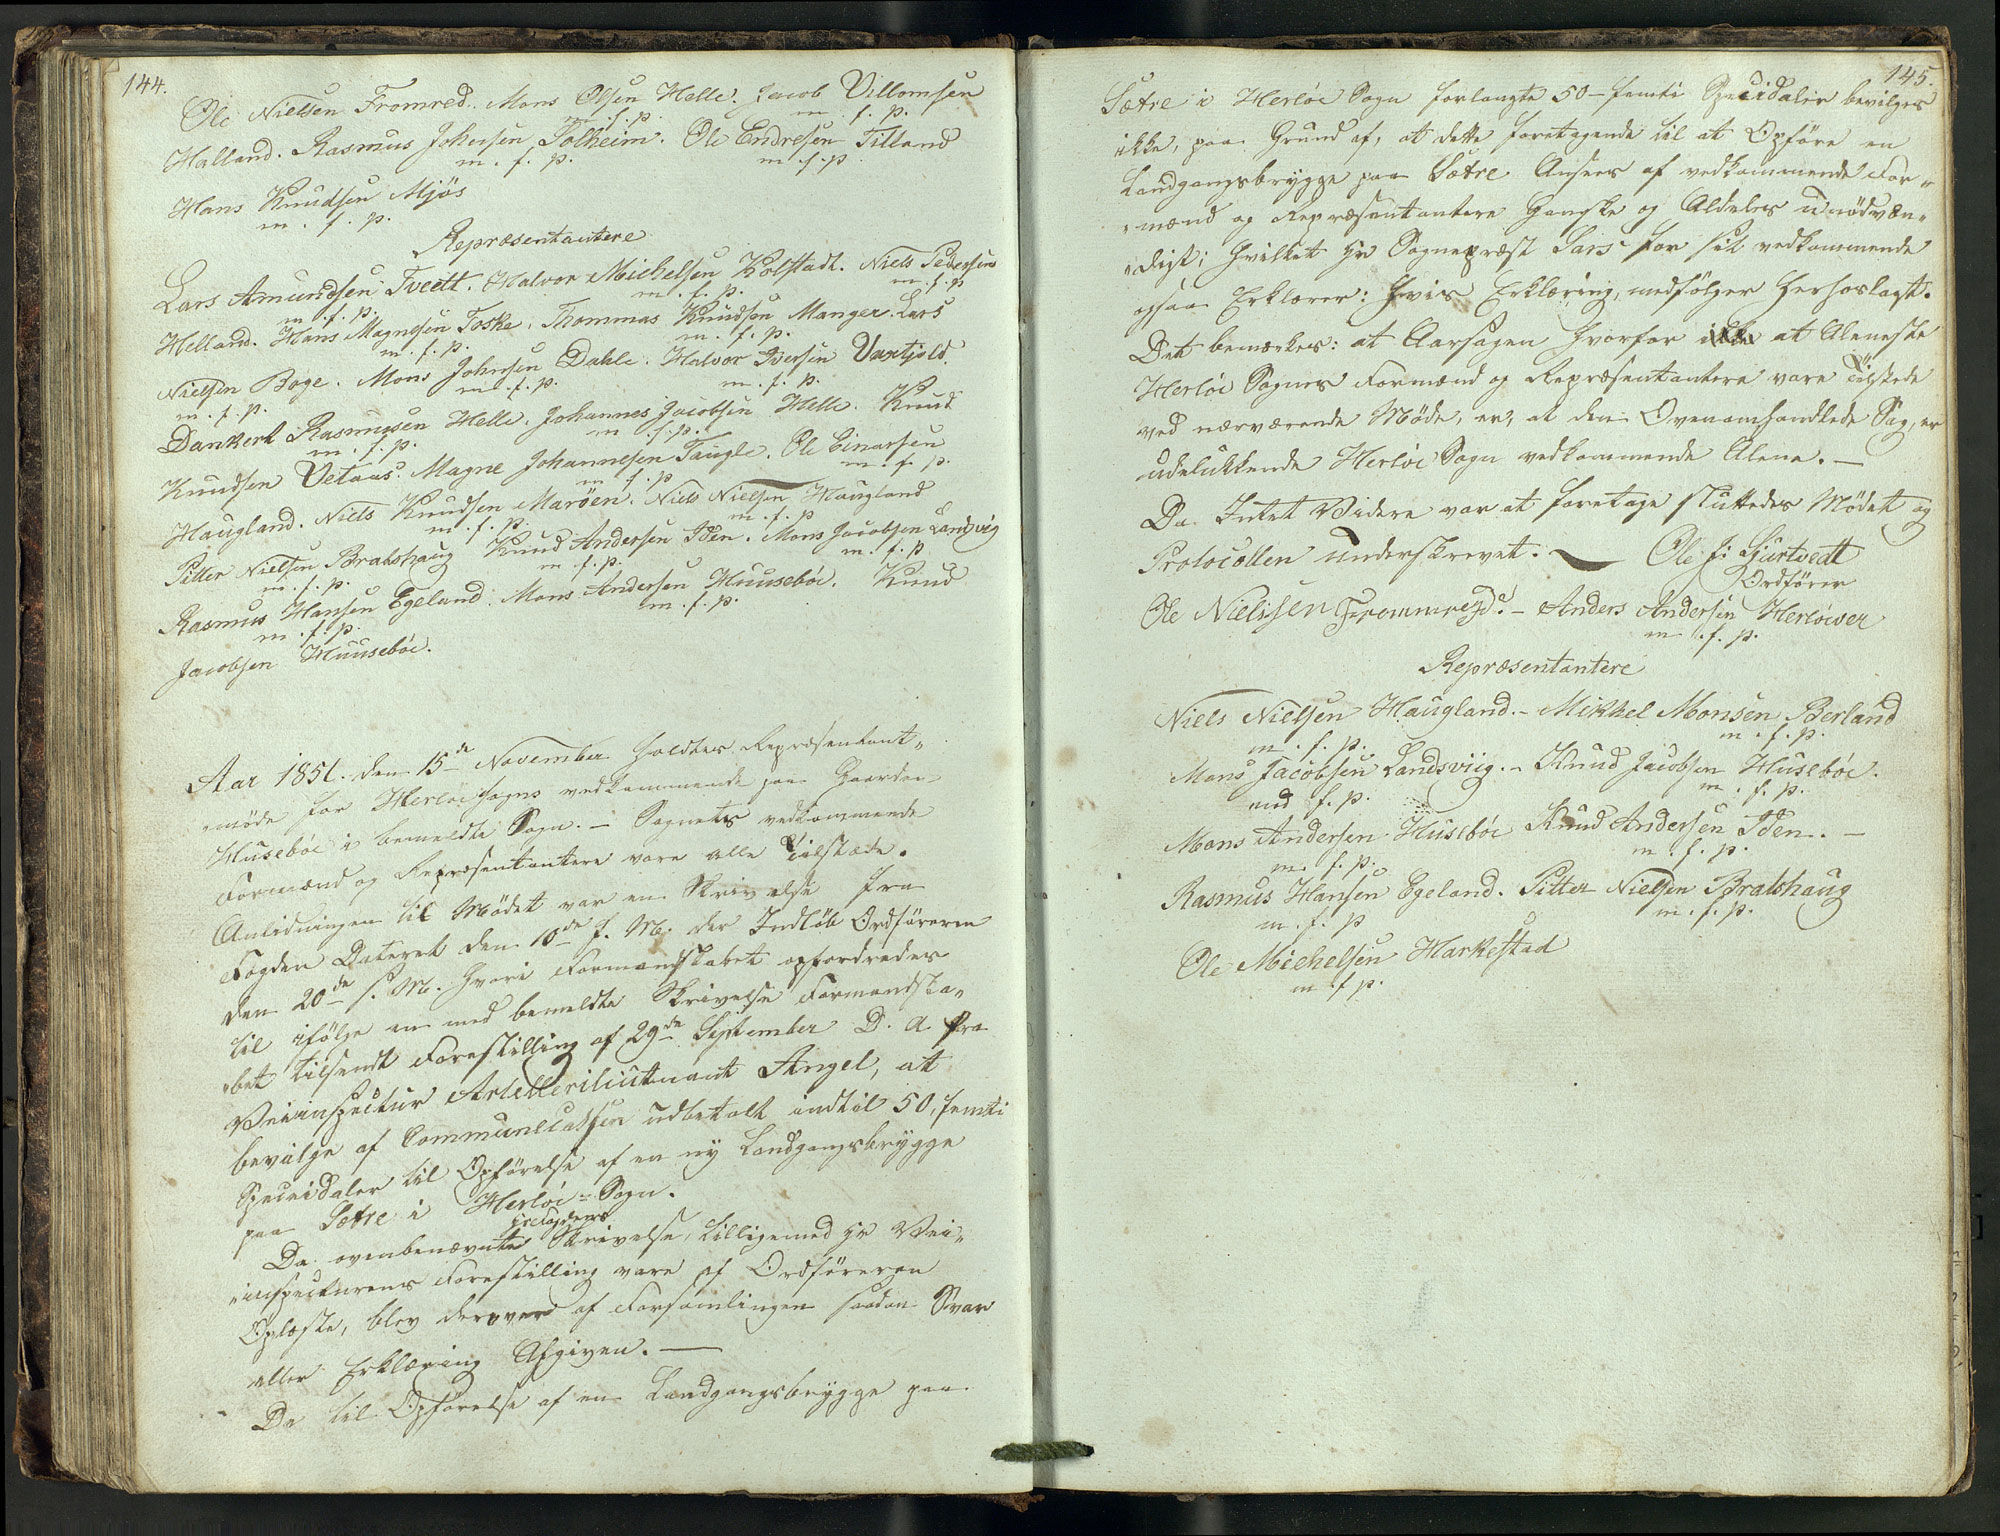 144.
Ole Nielsen Fromred. Mons Olsen Helle. Jacob Villomsen
m. f. p. m. f. p.
Halland. Rasmus Johnsen Tolheim. Ole Endresen Tilland
m. f. p. m. f. p.
Hans Knudsen Mjös
m. f. p.
Repræsentantere
Lars Amundsen Tveett. Halvor Michelsen Kolstadt. Niels Pedersen
m. f. p. m. f. p. m. f. p.
Helland. Hans Magnesen Toske. Thommas Knudsen Manger. Lars
m. f. p. m. f. p.
Nielsen Boge. Mons Johnsen Dahle. Halvor Iversen
m. f. p. m. f. p. m. f. p.
Dankert Rasmusen Helle. Johannes Jacobsen Helle. Knud
m. f. p. m. f. p.
Knudsen Vetaas. Magne Johannesen Taugle. Ole Einarsen
m. f. p. m. f. p.
Haugland. Niels Knudsen Maröen. Niels Nielsen Haugland
m. f. p. m. f. p.
Pitter Nielsen Bratshaug Knud Andersen Iden. Mons Jacobsen Landsvig
m. f. p. m. f. p. m. f. p.
Rasmus Hansen Egeland. Mons Andersen Huuseböe. Knud
m. f. p. m. f. p.
Jacobsen Huuseböe.
Aar 1851. den 15de November holdtes Repræsentant„
„möde for Herlöe sogns vedkommende paa Gaarden
Huseböe i bemeldte Sogn. — Sognets vedkommende
Formænd og Repræsentantere vare alle Tilstæde.
Anledningen til Mödet var en Skrivelse fra
Fogden Dateret den 10de f. M. der Indlöb Ordföreren
den 20de s. M. hvori Formandskabet opfordredes
til ifölge en med bemeldte Skrivelse Formandska„
„bet tilsendt Forestilling af 29de September D. A. fra
Veiinspectur Artelleriliutnant Angel, at
bevilge af Communecassen udbetalt indtil 50, femti
Speciedaler til Opförelse af en ny Landgangsbrygge
paa Sætre i Herlöe-Sogn.
Da ovenbenævnte Skrivelse, tilligemed Hr Vei„
„inspecturens Forestilling vare af Ordföreren
Oplæste, blev derover af Forsamlingen saadan Svar
eller Erklæring Afgiven. —
Da til Opförelse af en Landgangsbrygge paa
145.
Sætre i Herlöe Sogn forlangte 50 - femti Speciedaler bevilges
ikke, paa Grund af, at dette foretagende til at Opföre en
Landgangsbrygge paa Sætre Ansees af vedkommende For„
„mænd og Repræsentantere Ganske og Aldeles unödven„
„digt; hvilket Hr Sognepræst Sars for sit vedkommende
ogsaa Erklærer: hvis Erklæring, medfölger herhoslagt.
Det bemærkes: at Aarsagen hvorfor at Aleneste
Herlöe Sognes Formænd og Repræsentantere vare Tilstede
ved nærværende Möde, er, at den Ovenomhandlede Sag, er
udelukkende Herlöe Sogn vedkommende Alene. —
Da Intet Videre var at foretage sluttedes Mödet og
Protocollen underskrevet. — Ole J: Gjertvedt
Ordförer
Ole Nielsen Frommreide. - Anders Andersen Herlöever
m. f. p.
Repræsentantere
Niels Nielsen Haugland. - Mikkel Monsen Berland
m. f. p. m. f. p.
Mons Jacobsen Landsviig. - Knud Jacobsen Huseböe.
med f. p. m. f. p.
Mons Andersen Huseböe Knud Andersen Iden. —
m. f. p. m. f. p.
Rasmus Hansen Egeland. Pitter Nielsen Bratshaug
m. f. p m. f. p.
Ole Michelsen Markestad
m f p.